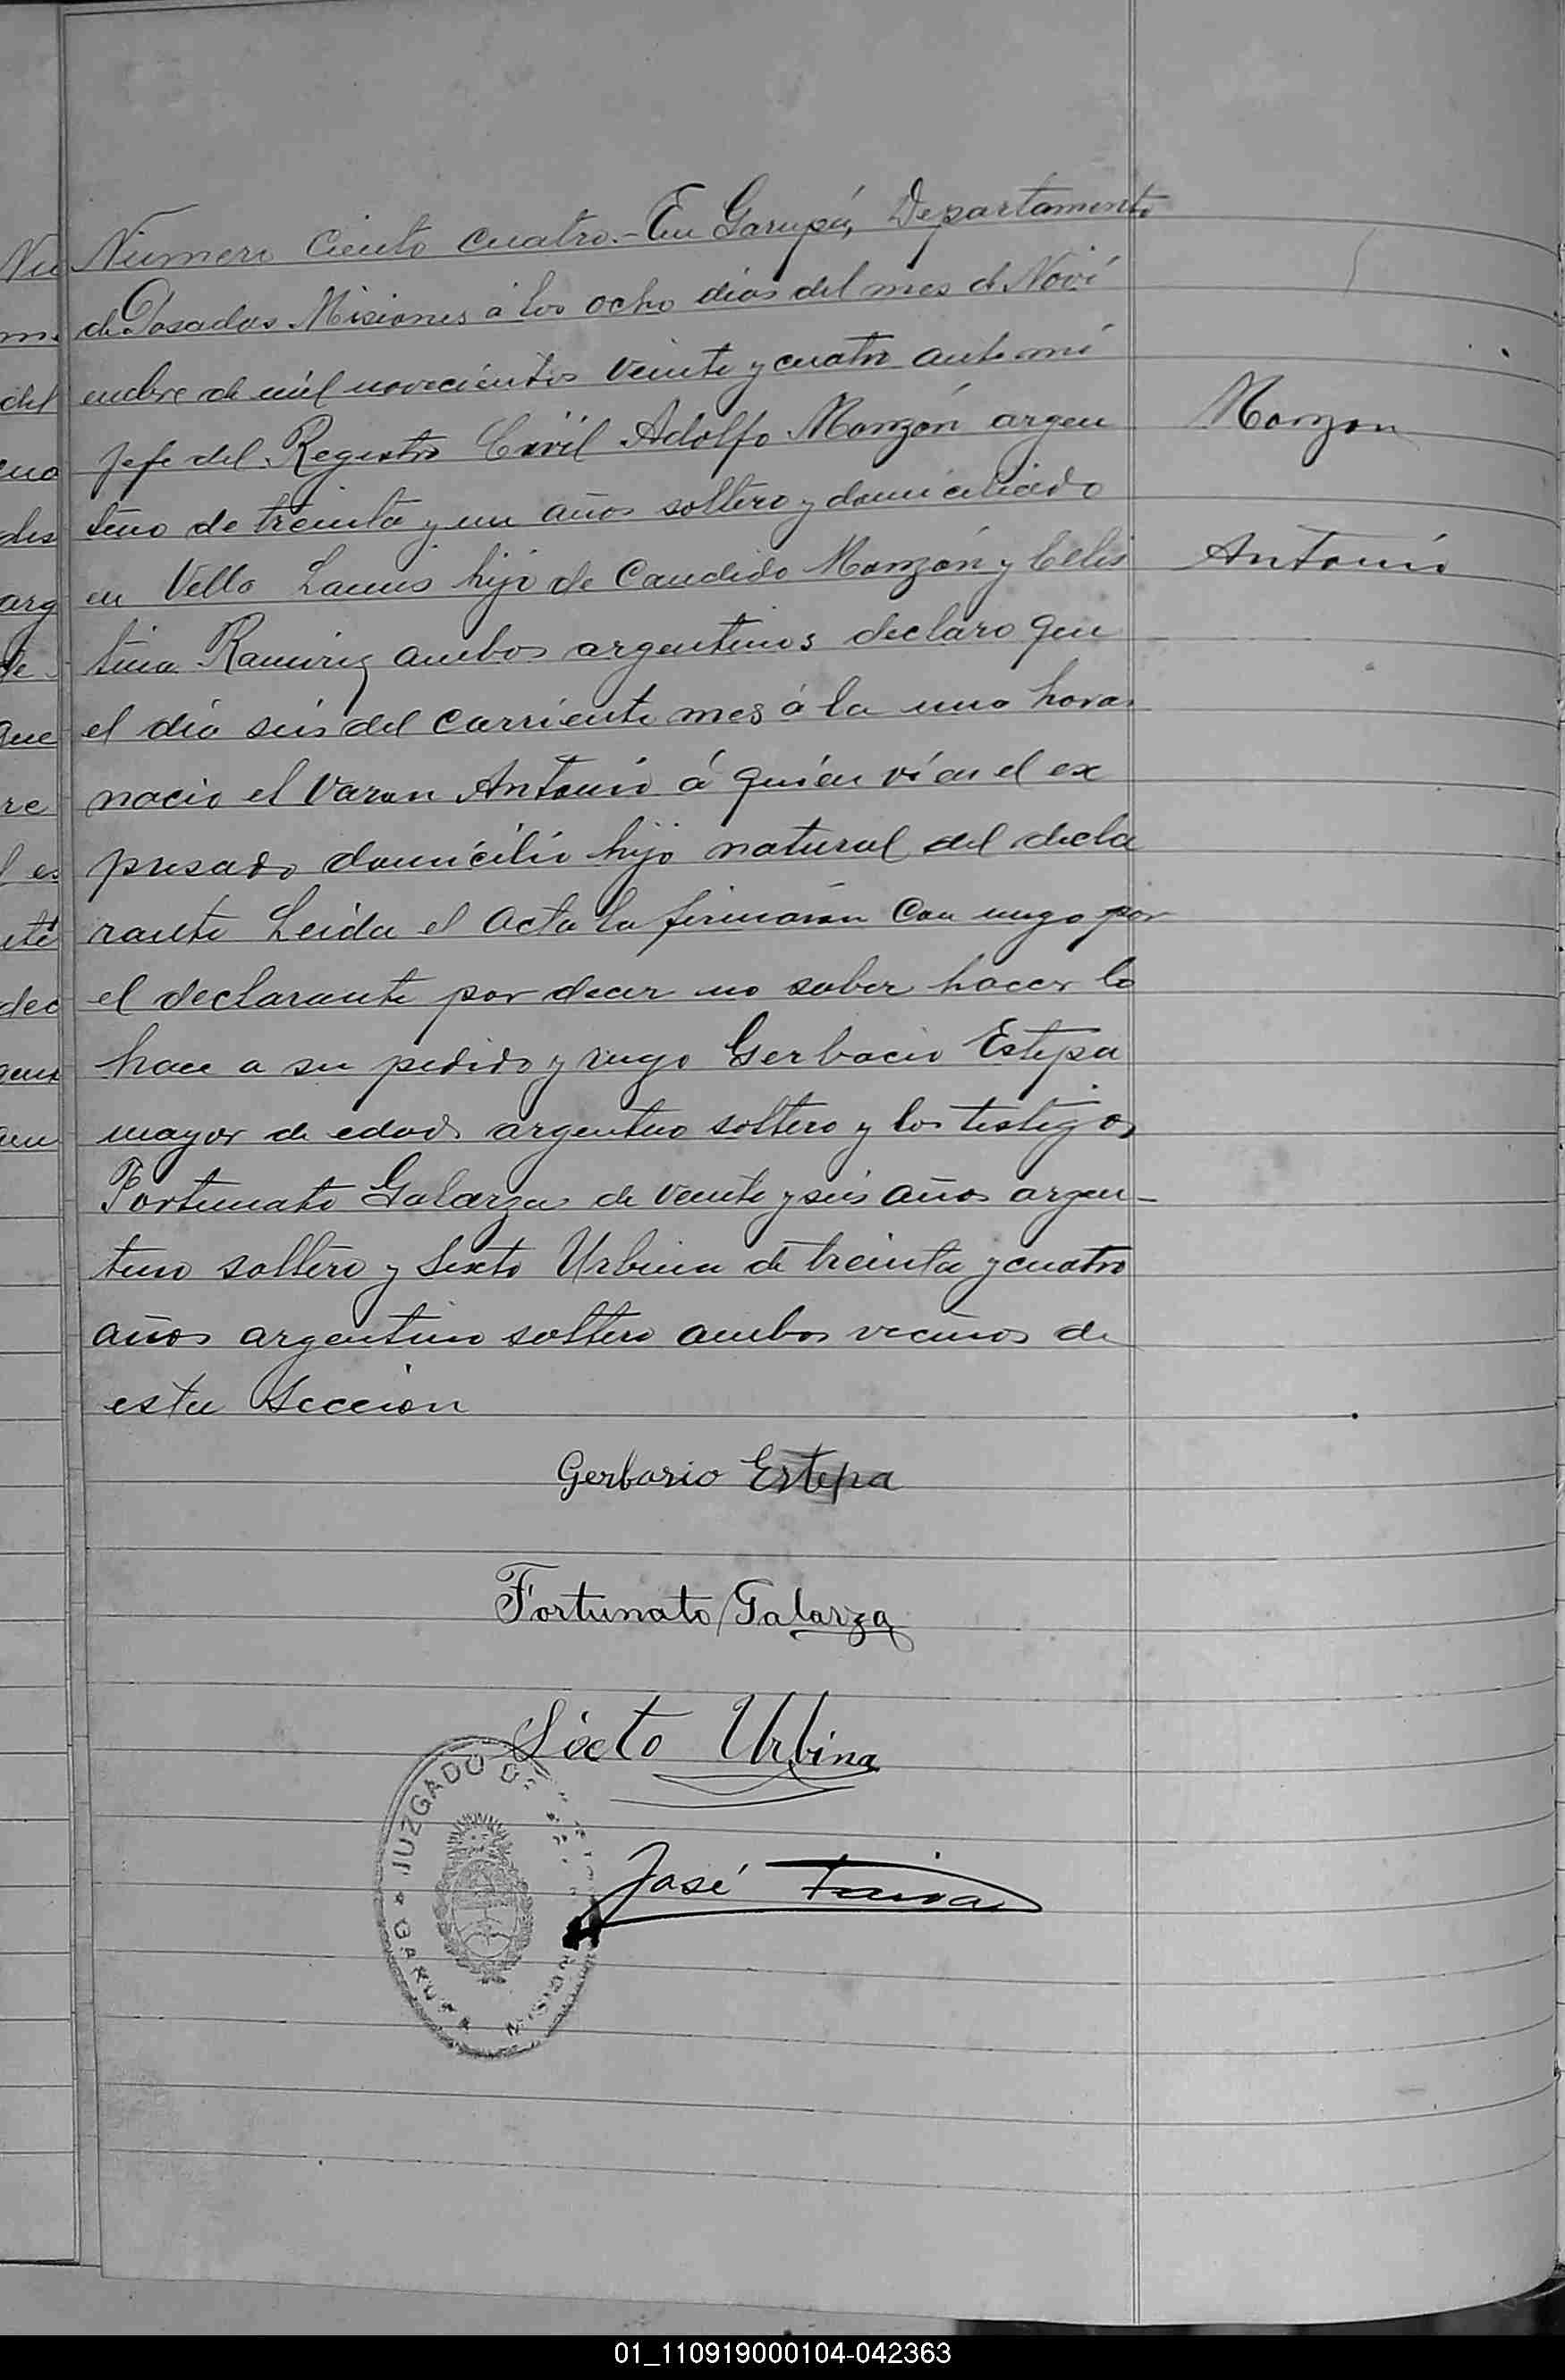 Número Ciento cuatro.- En Garupá, Departamento
de Posadas Misiones á los ocho dias del mes de Novi
embre de mil novecientos veinte y cuatro ante mi
Jefe del Registro Civil Adolfo Monzón argen
tino de treinta y un años soltero y domiciliado
en Vello Lanus hijo de Candido Monzón y Celes
tina Ramirez ambos argentinos declaro que
el dia seis del corriente mes á la una horas
nacio el varon Antonio á quien ví en el ex
presado domicilio hijo natural del decla
rante Leida el acta la firmaron con migo por
el declarante por decir no saber hacer lo
hace a su pedido y rugo Gerbacio Estepa
mayor de edad argentino soltero y los testigos
Fortunato Galarza de veinte y seis años argen-
tino soltero y Sixto Urbina de treinta y cuatro
años argentino soltero ambos vecinos de
esta Seccion
Monzon
Antonio
Gerbasio Estepa
Fortunato Galarza
Sixto Urbina
José
JUZGADO
GARUPA
01_110919000104-042363